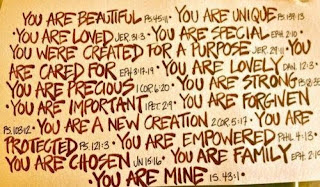 YOU ARE BEAUTIFUL PS.45:11 • YOU ARE UNIQUE PS.139:13
• YOU ARE LOVED JER.31:3 • YOU ARE SPECIAL EPH.2:10 •
YOU WERE CREATED FOR A PURPOSE JER.29:11 YOU
ARE CARED FOR EPH.3:17-19 • YOU ARE LOVELY DAN.12:3 •
YOU ARE PRECIOUS 1 COR.6:20 YOU ARE STRONG
• YOU ARE IMPORTANT 1 PET.2:9 • YOU ARE FORGIVEN
PS.103:12 • YOU ARE A NEW CREATION 2 COR.5:17 • YOU ARE
PROTECTED PS.121:3 • YOU ARE EMPOWERED PHIL.4:13 •
YOU ARE CHOSEN JN 15:16 • YOU ARE FAMILY EPH.2:19
• YOU ARE MINE IS.43:1 •